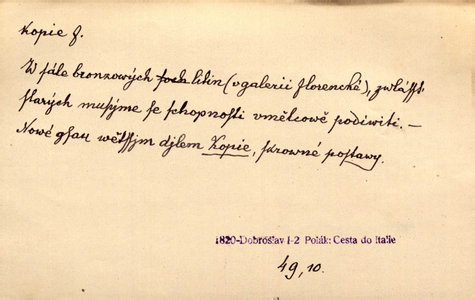 Kopie f.
W sále bronzowých soch litin (v galerii florencké), zwlásst
starých musýme se schopnosti vmělcowě podiwiti. —
Nowé gsau wětssjm djlem Kopie, skrowné postawy.
1820-Dobroslav I-2 Polák: Cesta do Italie
49, 10.